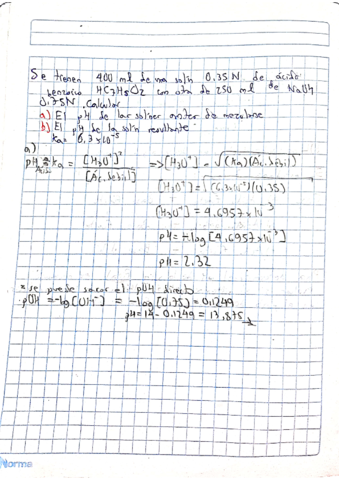 Se tienen 400 ml de una soln 0.35 N de ácido
benzoico HC7H5O2 con otra de 250 ml de NaOH
0.75N. Calcular
a) El pH de las soln antes de mezclarse
b) El pH de la soln resultante.
Ka= 6,3x10⁻⁵
a)
pH Ácido Ka = [H3O⁺]² / [Ác. débil] => [H3O⁺] = √(Ka)(Ác. débil)
[H3O⁺] = √(6.3x10⁻⁵)(0,35)
[H3O⁺] = 4,6957x10⁻³
pH = -log[4,6957x10⁻³]
pH = 2.32
* se puede sacar el pOH directo
pOH = -log[OH⁻] = -log[0,75] = 0,1249
pH = 14 - 0.1249 = 13,875
Norma